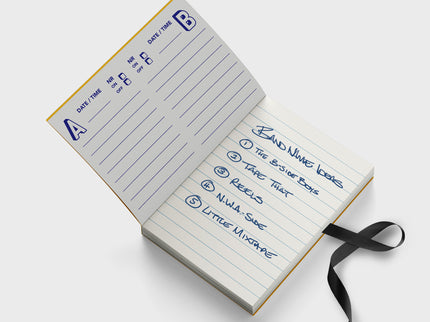 A
DATE / TIME
NR
ON
OFF
B
DATE / TIME
NR
ON
OFF
BAND NAME IDEAS
1 THE B-SIDE BOYS
2 TAPE THAT
3 REELS
4 N.W.A-SIDE
5 LITTLE MIXTAPE